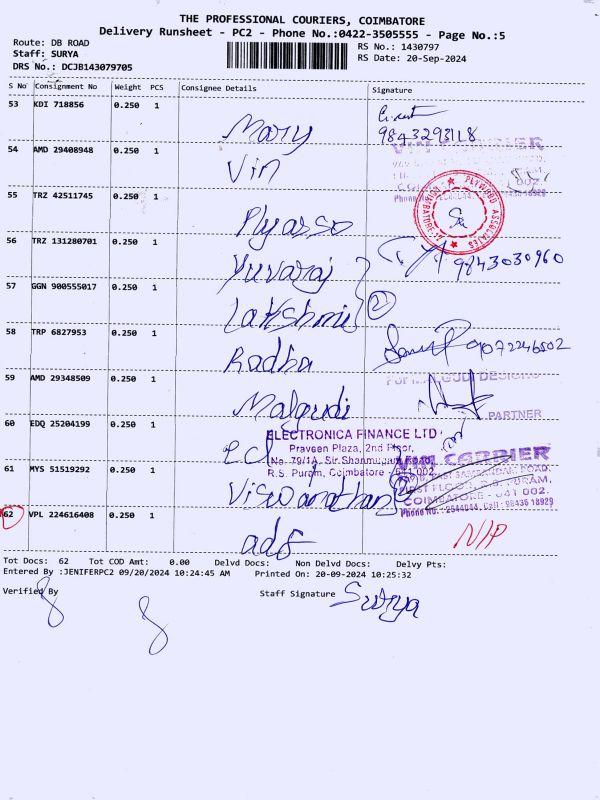 THE PROFESSIONAL COURIERS, COIMBATORE
Delivery Runsheet - PC2 - Phone No.:0422-3505555 - Page No.:5
Route: DB ROAD
Staff: SURYA
DRS No.: DCJB143079705
RS No.: 1430797
RS Date: 20-Sep-2024
S No Consignment No Weight PCS Consignee Details Signature
53 KDI 718856 0.250 1
Mary
9843293118
54 AMD 29408948 0.250 1
Vin
VIN CARRIER
55 TRZ 42511745 0.250 1
PLYWOOD ASSOCIATES
COIMBATORE-2
Plyasso
56 TRZ 131280701 0.250 1
Yuvaraj
9843030960
57 GGN 900555017 0.250 1
Lakshmi
2
58 TRP 6827953 0.250 1
Radha
9072246502
59 AMD 29348509 0.250 1
Malgudi
PARTNER
60 EDQ 25204199 0.250 1
ecl
ELECTRONICA FINANCE LTD
Praveen Plaza, 2nd Floor,
No. 79/1A, Sir Shanmugam Road,
R.S. Puram, Coimbatore - 641 002.
61 MYS 51519292 0.250 1
Viswanathan
VIN CARRIER
FIRST FLOOR, R.S. PURAM,
COIMBATORE - 641 002.
Phone No. : 2544044, Cell : 98436 18929
62 VPL 224616408 0.250 1
ads
N/P
Tot Docs: 62 Tot COD Amt: 0.00 Delvd Docs: Non Delvd Docs: Delvy Pts:
Entered By :JENIFERPC2 09/20/2024 10:24:45 AM Printed On: 20-09-2024 10:25:32
Verified By
Staff Signature Surya